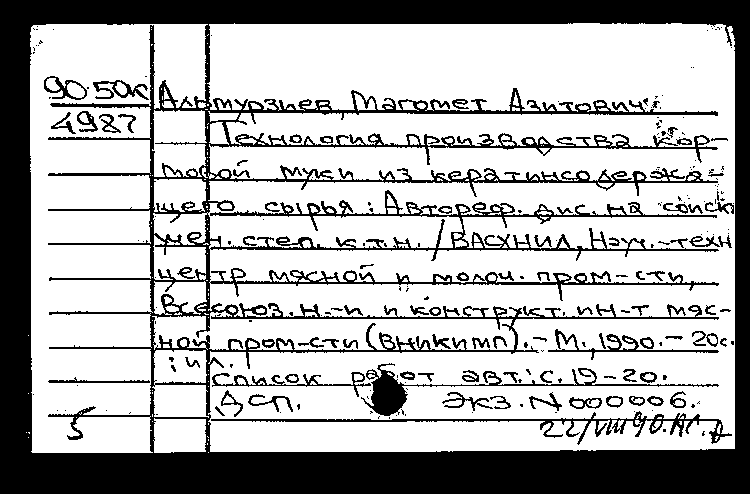 90-50к Альтмурзиев, Магомет Азитович
4987
Технология производства кор-
мовой муки из кератинсодержа-
щего сырья : Автореф. дис. на соиск
учен. степ. к.т.н. / ВАСХНИЛ, Науч.-техн
центр мясной и молоч. пром-сти,
Всесоюз. н.-и. и конструкт. ин-т мяс-
ной пром-сти (ВНИКИМП). - М., 1990. - 20с.
: ил.
Список работ авт.: с. 19-20.
ДСП. Экз. N 000006.
5 22/VIII 90.